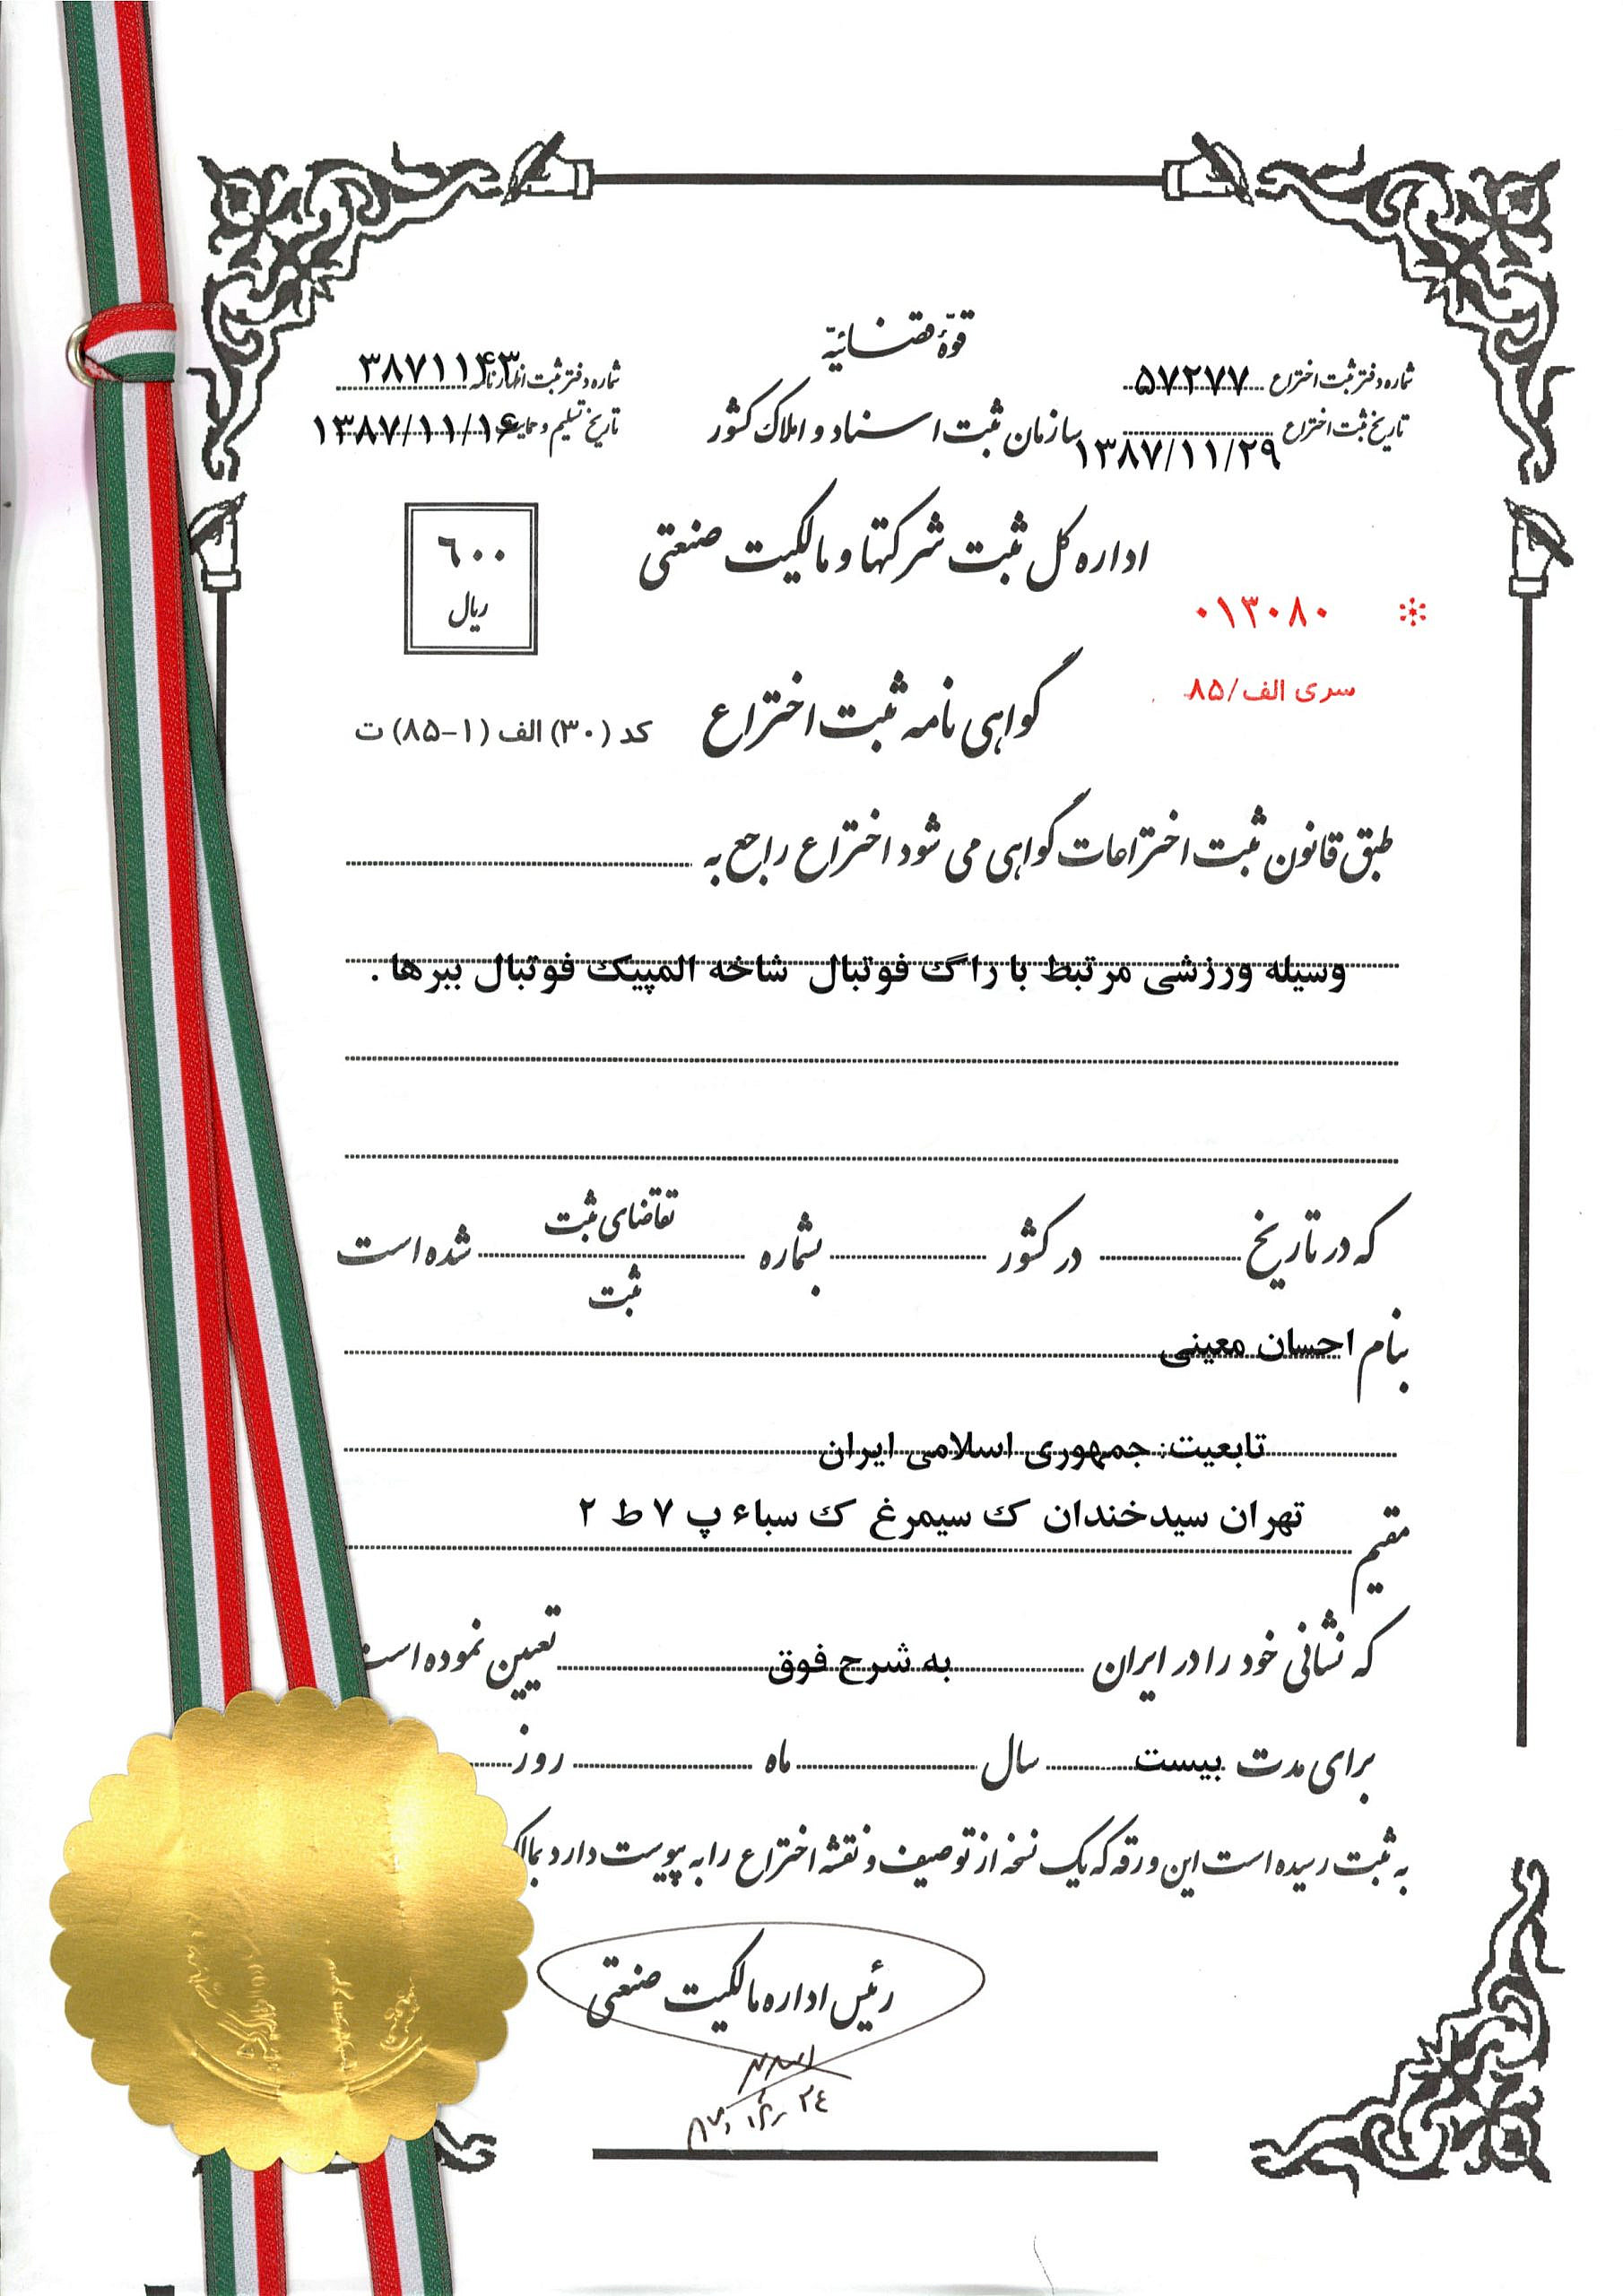 قوّهٔ قضائیّه
شماره دفتر ثبت اختراع ۵۷۲۷۷
شماره دفتر ثبت اظهارنامه ۳۸۷۱۱۴۳
سازمان ثبت اسناد و املاک کشور
تاریخ ثبت اختراع ۱۳۸۷/۱۱/۲۹
تاریخ تسلیم و حمایت ۱۳۸۷/۱۱/۱۶
اداره کل ثبت شرکتها و مالکیت صنعتی
۶۰۰
ریال
۰۱۳۰۸۰
سری الف/۸۵
گواهی نامه ثبت اختراع
کد (۳۰) الف (۱-۸۵) ت
طبق قانون ثبت اختراعات گواهی می شود اختراع راجع به
وسیله ورزشی مرتبط با راگ فوتبال شاخه المپیک فوتبال ببرها .
که در تاریخ در کشور بشماره تقاضای ثبت شده است
ثبت
بنام احسان معینی
تابعیت: جمهوری اسلامی ایران
مقیم تهران سیدخندان ک سیمرغ ک سباء پ ۷ ط ۲
که نشانی خود را در ایران به شرح فوق تعیین نموده است
برای مدت بیست سال ماه روز
به ثبت رسیده است این ورقه که یک نسخه از توصیف و نقشه اختراع را به پیوست دارد
رئیس اداره مالکیت صنعتی